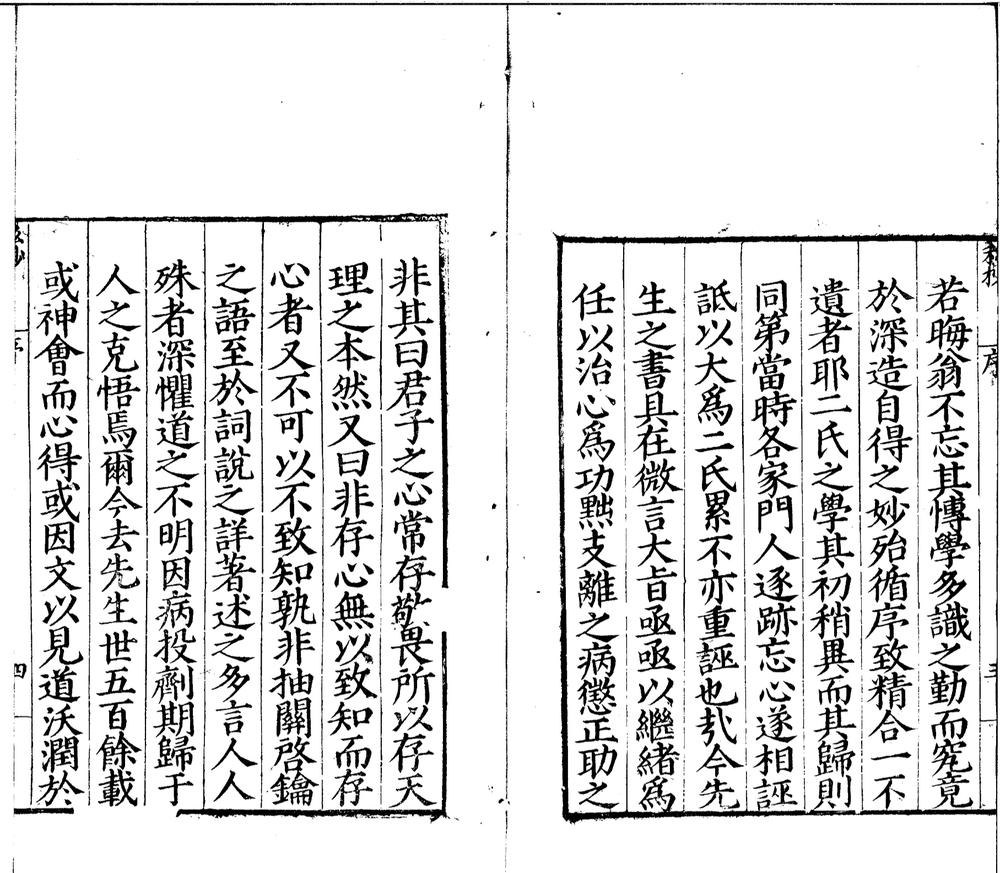 序
三
若晦翁不忘其愽學多識之勤而究竟
於深造自得之妙殆循序致精合一不
遺者耶二氏之學其初稍異而其歸則
同第當時各家門人逐跡忘心遂相誣
詆以大爲二氏累不亦重誣也㢤今先
生之書具在微言大旨亟亟以繼緒爲
任以治心爲功黜支離之病懲正助之
非其曰君子之心常存敬畏所以存天
理之本然又曰非存心無以致知而存
心者又不可以不致知孰非抽關啓鑰
之語至於詞說之詳著述之多言人人
殊者深懼道之不明因病投劑期歸于
人之克悟焉爾今去先生世五百餘載
或神會而心得或因文以見道沃潤於
四